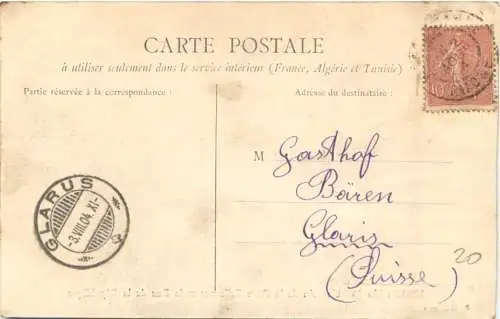 CARTE POSTALE
à utiliser seulement dans le service intérieur (France, Algérie et Tunisie)
Partie réservée à la correspondance :
Adresse du destinataire :
10
M Gasthof
Bären
Glaris
(Suisse)
20
GLARUS
-3.VIII.04. XI-